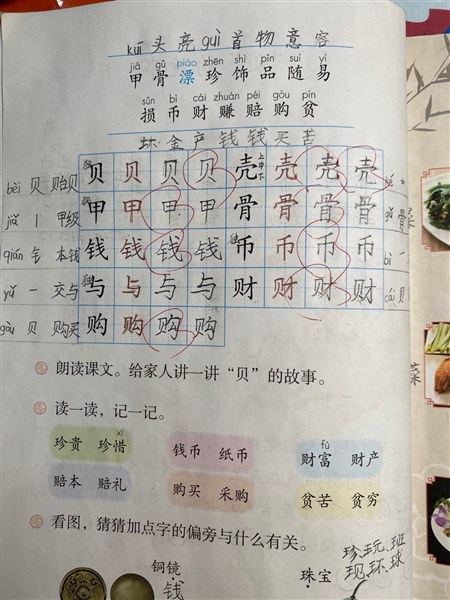 kuī 头 亮 guì 首 物 意 容
jiǎ gǔ piào zhēn shì pǐn suí yì
甲 骨 漂 珍 饰 品 随 易
sǔn bì cái zhuàn péi gòu pín
损 币 财 赚 赔 购 贫
坏 金 产 钱 钱 买 苦
bèi 贝 贻贝 独 贝 贝 贝 贝 上中下 壳 壳 壳 壳
jiǎ 丨 甲级 独 甲 甲 甲 甲 骨 骨 骨 骨 gǔ 骨
qián 钅 本钱 钱 钱 钱 钱 独 币 币 币 币 bì
yǔ 一 交与 独 与 与 与 与 财 财 财 财 cái 贝
gòu 贝 购买 购 购 购 购
朗读课文。给家人讲一讲“贝”的故事。
读一读，记一记。
xī
珍贵 珍惜 钱币 纸币
fù
财富 财产
赔本 赔礼 购买 采购 贫苦 贫穷
看图，猜猜加点字的偏旁与什么有关。
铜镜 珠宝
钱
珍、玩、班
现、环、球
菜